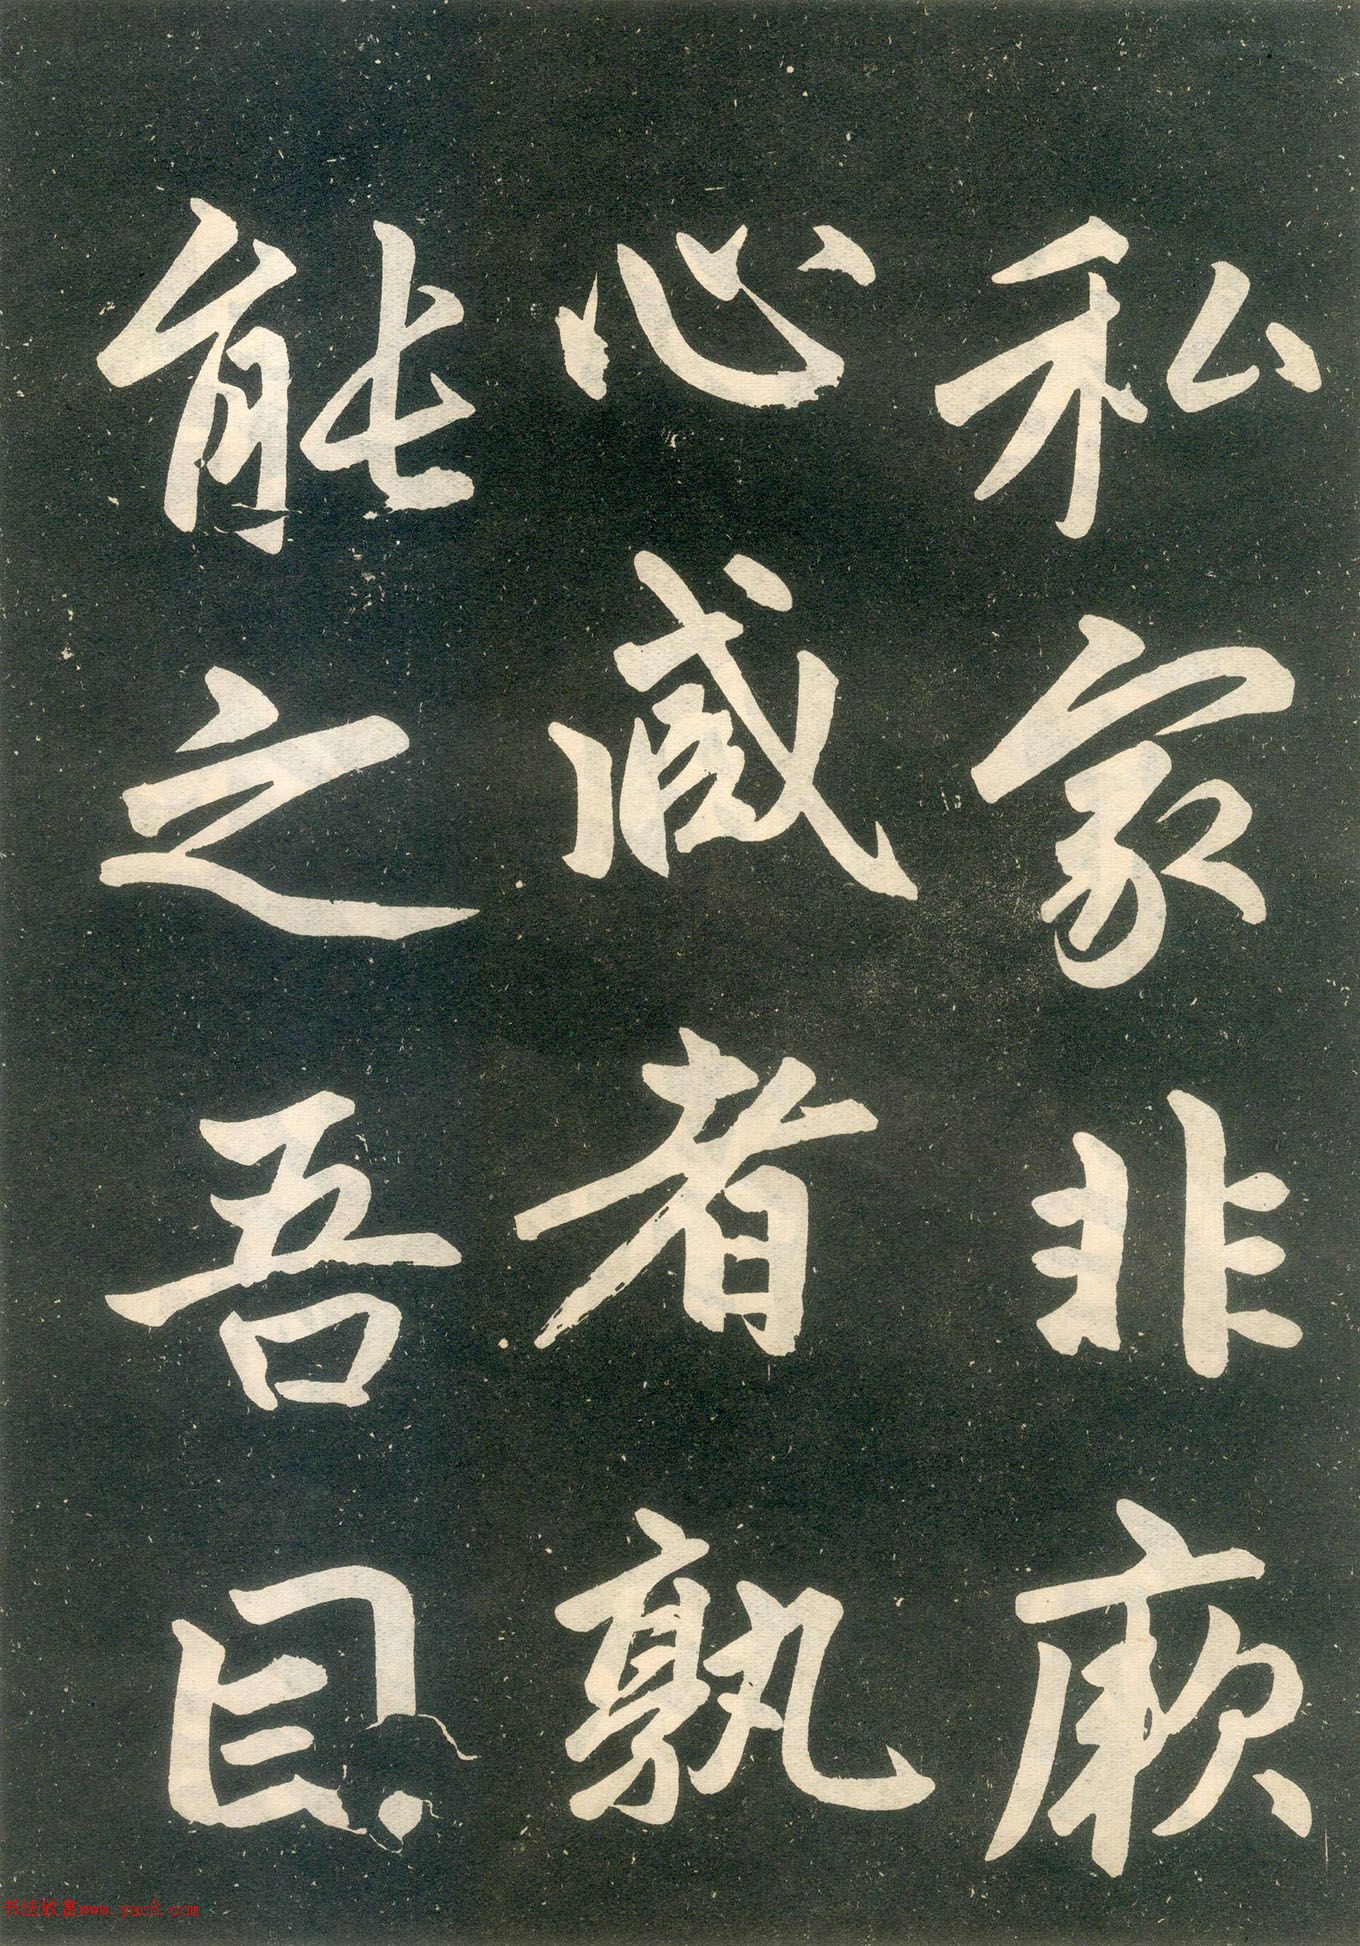 私家非厥
心臧者孰
能之吾目
书法欣赏www.yac8.com